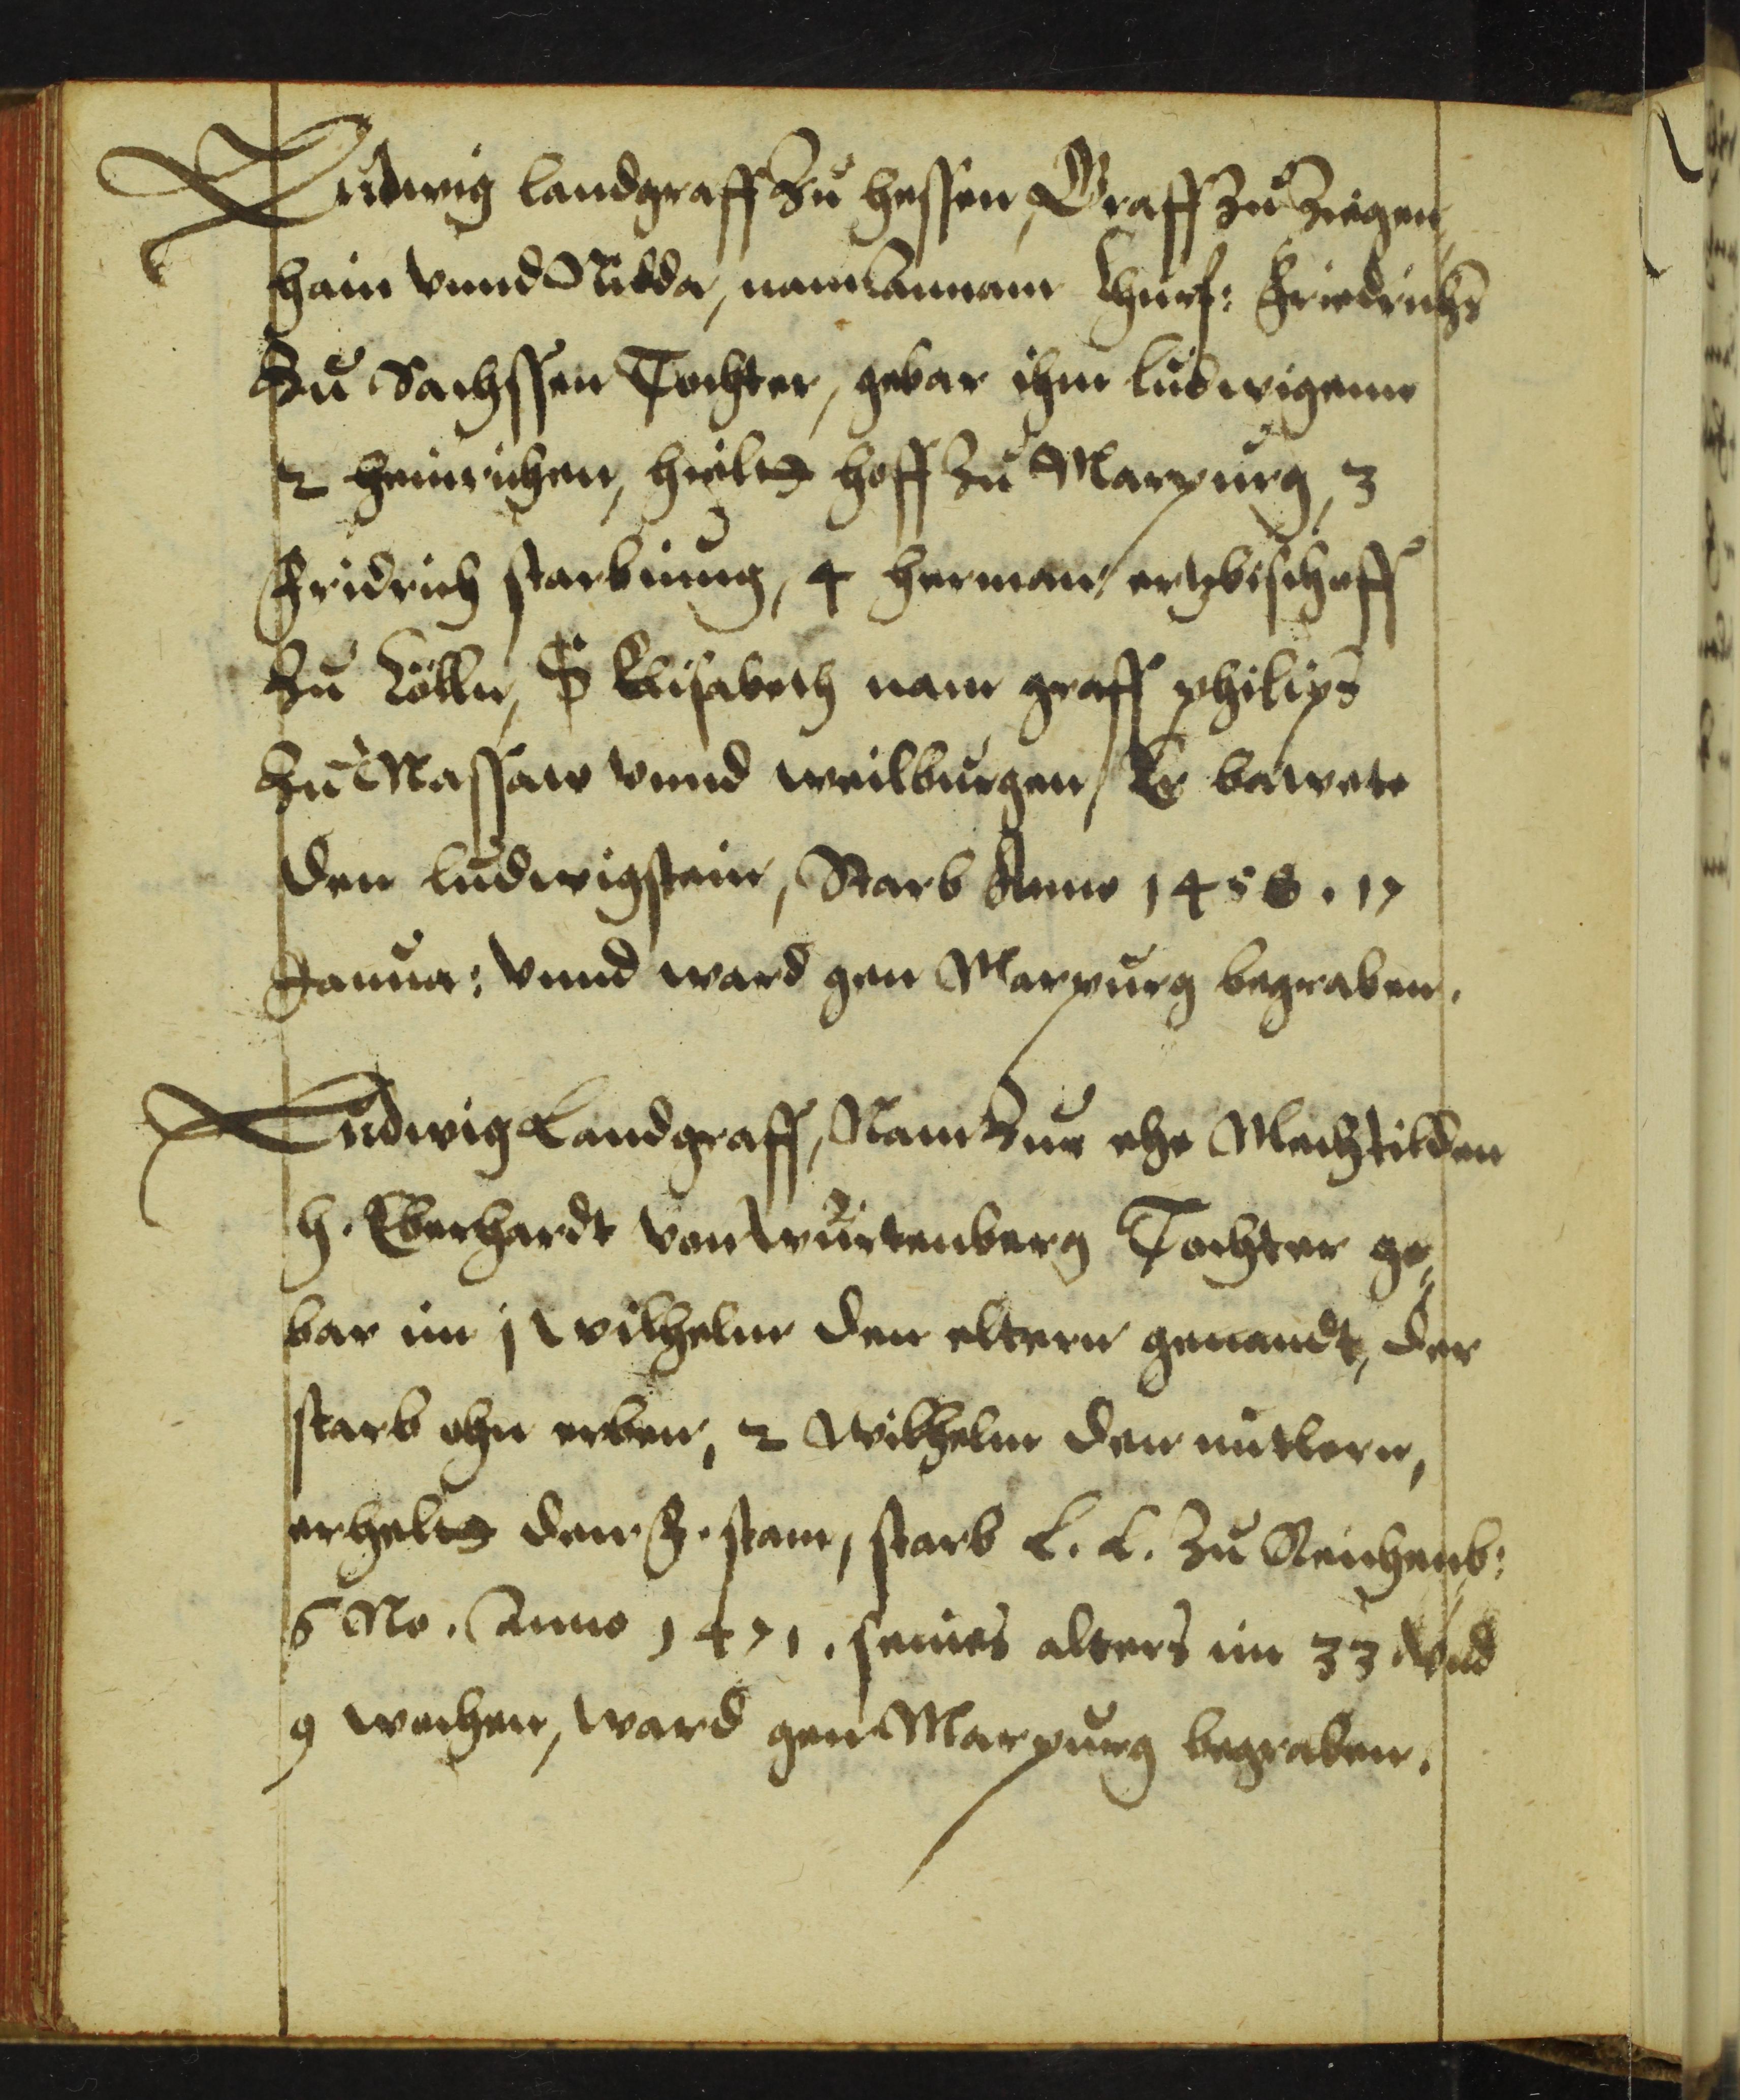 Ludwig landgraff zu hessen, Graff zu Ziegen,
hain vnnd Nidda, nam annam Churf: Friedrichs
zu Sachssen Tochter, gebar ihm ludwigenn
2 heinrichen, hielt hoff zu Marpurg, 3
Fridrich starb iung, 4 herman ertzbischoff
zu Cölln, 5 Elisabeth nam graff philips
zu Nassaw vnnd weilburgen, Er bawete
den ludwigstein, Starb Anno 1458. 17
Janua: vnnd ward gen Marpurg begraben.
Ludwig Landgraff, Nam zur ehe Mechtilden
h. Eberhardt von Würtenberg Tochter ge,
bar im 1 Wilhelm den eltern genandt, der
starb ohn erben, 2 Wilhelm den mitlern,
erhelt den h. stam, starb L. L. zu Reichenb:
6 No. Anno 1471. seines alters im 33 vnd
9 wochen, ward gen Marpurg begraben.